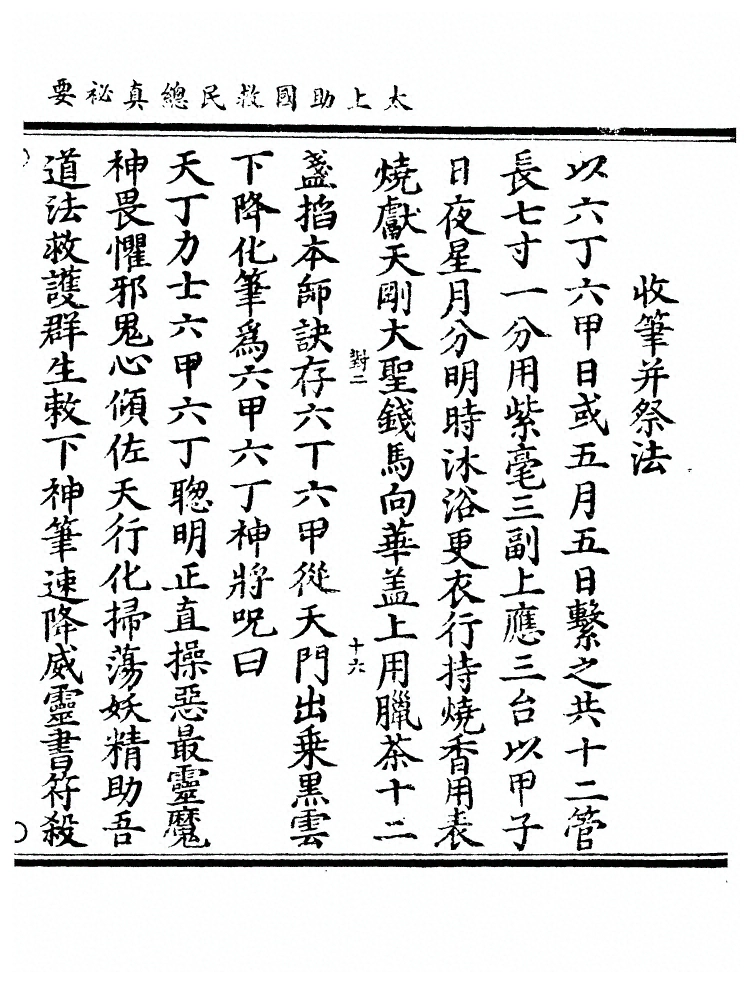 太上助國救民總真祕要
收筆并祭法
以六丁六甲日或五月五日繫之共十二管
長七寸一分用紫毫三副上應三台以甲子
日夜星月分明時沐浴更衣行持燒香用表
燒獻天剛大聖錢馬向華盖上用臘茶十二
對二
十六
盞掐本師訣存六丁六甲從天門出乗黑雲
下降化筆爲六甲六丁神將呪曰
天丁力士六甲六丁聰明正直操惡最靈魔
神畏懼邪鬼心傾佐天行化掃蕩妖精助吾
道法救護群生敕下神筆速降威靈書符殺